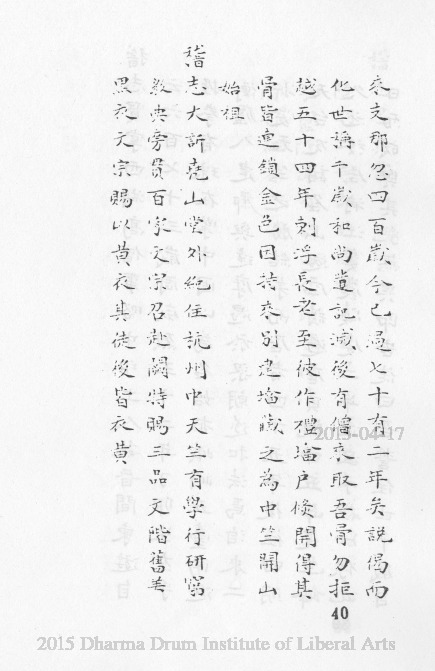 來支那忽四百歲今已過七十有二年矣說偈而
化世稱千歲和尚遺記滅後有僧來取吾骨勿拒
越五十四年刺浮長老至彼作禮塔户倐開得其
骨皆連鎖金色因持來別建塔藏之為中竺開山
始祖
稽志大訢堯山堂外紀住杭州中天竺有學行研窮
教典旁貫百家文宗召赴闕特賜三品文階舊著
黑衣文宗賜以黄衣其徒後皆衣黄
40
2013-04-17
2015 Dharma Drum Institute of Liberal Arts